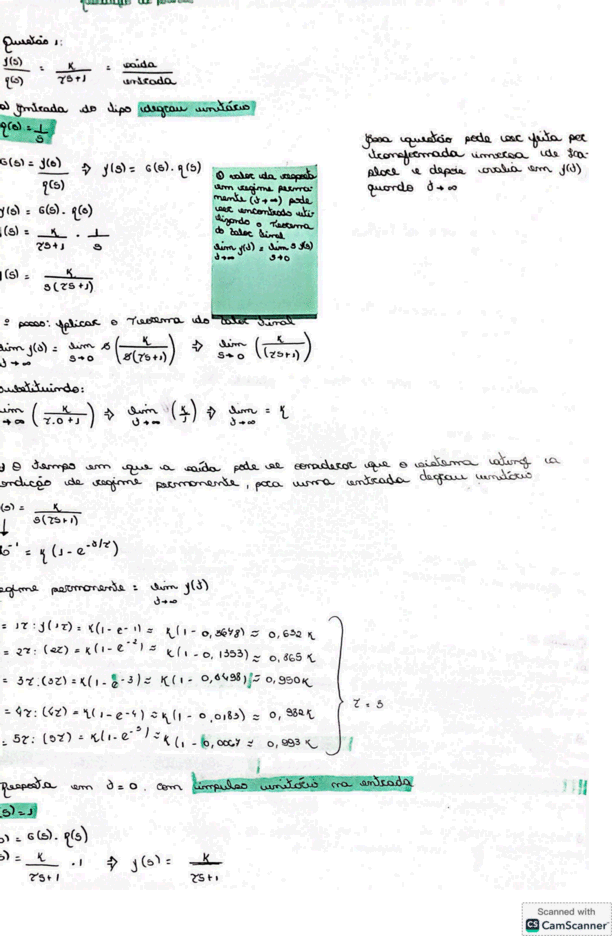 Questão 1:
y(s)/q(s) = K/τs+1 = saída/entrada
a) Entrada do tipo degrau unitário
q(s) = 1/s
G(s) = y(s)/q(s) ⇒ y(s) = G(s) · q(s)
y(s) = G(s) · q(s)
y(s) = K/τs+1 · 1/s
y(s) = K/s(τs+1)
O valor da resposta
em regime perma-
nente (t→∞) pode
ser encontrado uti-
lizando o Teorema
do Valor Final
lim y(t) = lim s y(s)
t→∞ s→0
Essa questão pode ser feita por
transformada inversa de La-
place e depois avalia em y(t)
quando t→∞
º passo: Aplicar o Teorema do Valor Final
lim y(t) = lim s (K/s(τs+1)) ⇒ lim (K/(τs+1))
t→∞ s→0 s→0
Substituindo:
lim (K/τ.0+1) ⇒ lim (K/1) ⇒ lim = K
t→∞ t→∞ t→∞
) O tempo em que a saída pode se considerar que o sistema ating a
condição de regime permanente, para uma entrada degrau unitário
(s) = K/s(τs+1)
↓
⁻¹ = K(1-e^-t/τ)
regime permanente = lim y(t)
t→∞
= 1τ: y(1τ) = K(1-e-1) ≈ K(1-0,3678) ≈ 0,632 K
= 2τ: (2τ) = K(1-e^-2) ≈ K(1-0,1353) ≈ 0,865 K
= 3τ: (3τ) = K(1-e-3) ≈ K(1-0,0498) ≈ 0,950K
= 4τ: (4τ) = K(1-e-4) ≈ K(1-0,0183) ≈ 0,982K
= 5τ: (5τ) = K(1-e^-5) ≈ K(1-0,0067 ≈ 0,993 K
τ = 5
Resposta em t=0. com impulso unitário na entrada
(s) = 1
(s) = G(s) · q(s)
(s) = K/τs+1 · 1 ⇒ y(s) = K/τs+1
Scanned with
CS CamScanner